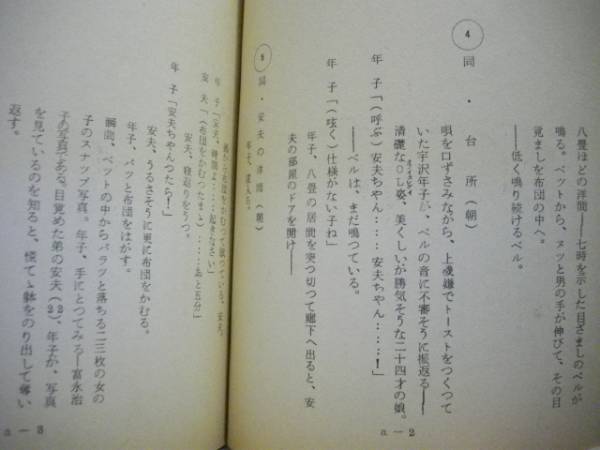 八畳ほどの洋間――七時を示した目ざましのベルが
鳴る。ベットから、ヌッと男の手が伸びて、その目
覚ましを布団の中へ。
――低く鳴り続けるベル。
4 同・台所（朝）
唄を口ずさみながら、上機嫌でトーストをつくつて
いた宇沢年子が、ベルの音に不審そうに振返る――
清礎な し姿、美くしいが勝気そうな二十四才の娘。
年子「（呼ぶ）安夫ちゃん‥‥安夫ちゃん‥‥！」
――ベルは、まだ鳴つている。
年子「（呟く）仕様がない子ね」
年子、八畳の居間を突つ切つて廊下へ出ると、安
夫の部屋のドアを開け――
a－2
5 同・安夫の洋間（朝）
年子、這入る。
頭から布団をかむつて眠つている、安夫。
年子「安夫、時間よ‥‥起きなさい」
安夫「（布団をかむつたまゝ）‥‥あと五分」
安夫、寝返りをうつ。
年子「安夫ちゃんつたら！」
安夫、うるさそうに更に布団をかむる。
年子、パッと布団をはがす。
瞬間、ベットの中からパラッと落ちる二三枚の女の
子のスナップ写真。年子、手にとつてみる――富永治
子の写真である。目覚めた弟の安夫（22）、年子が、写真
を見ているのを知ると、慌てゝ躰をのり出して奪い
返す。
a－3